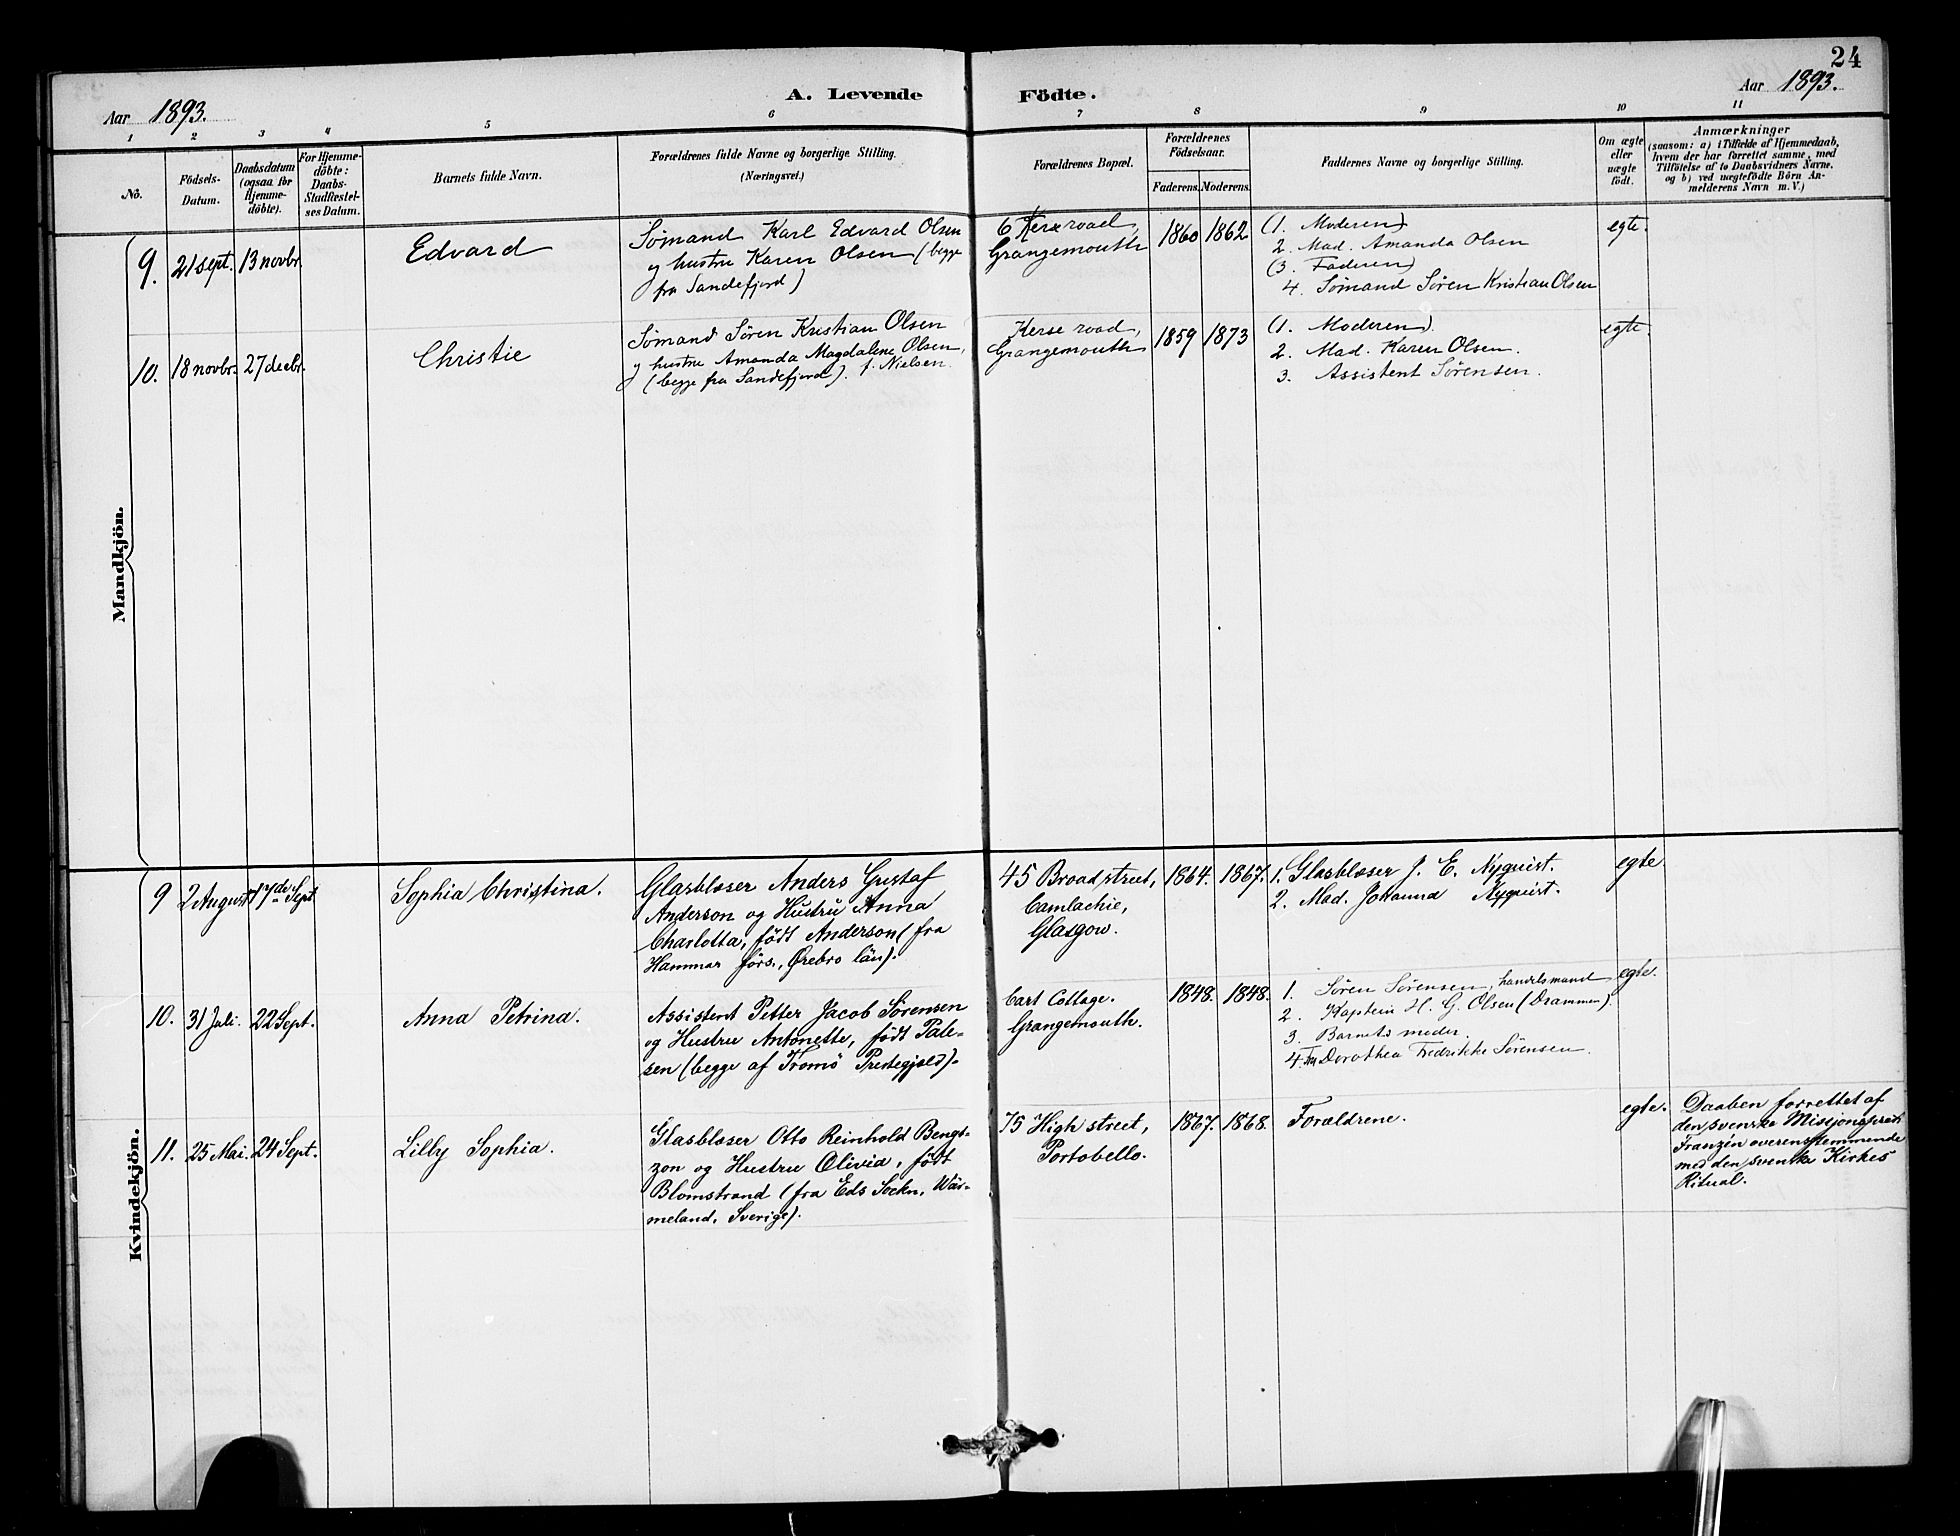 24
Aar 1893.
A. Levende Födte.
Aar 1893.
1 2 3 4 5 6 7 8 9 10 11
No.
Födsels-
Datum.
Daabsdatum
(ogsaa for
Hjemme-
döbte).
For Hjemme-
döbte:
Daabs-
Stadfæstel-
ses Datum.
Barnets fulde Navn.
Forældrenes fulde Navne og borgerlige Stilling.
(Næringsvei.)
Forældrenes Bopæl.
Forældrenes
Födselsaar.
Faderens. Moderens.
Faddernes Navne og borgerlige Stilling.
Om ægte
eller
uægte
födt.
Anmærkninger
(saasom: a) i Tilfælde af Hjemmedaab,
hvem der har forrettet samme, med
Tilföielse af to Daabsvidners Navne.
og b) ved uægtefödte Börn An-
melderens Navn m. V.)
Mandkjön.
9. 21 sept. 13 novbr.
Edvard
Sømand Karl Edvard Olsen
og hustru Karen Olsen (begge
fra Sandefjord)
6 Kerse road,
Grangemouth
1860 1862
(1. Moderen)
2. Mad. Amanda Olsen
(3. Faderen)
4. Sømand Søren Kristian Olsen
egte.
10. 18 novbr. 27 decbr.
Christie
Sømand Søren Kristian Olsen
og hustru Amanda Magdalene Olsen,
(begge fra Sandefjord). f. Nielsen.
Kerse road,
Grangemouth
1859 1873
(1. Moderen).
2. Mad. Karen Olsen.
3. Assistent Sørensen.
egte.
Kvindekjön.
9 2 August 17de Sept
Sophia Christina.
Glasblæser Anders Gustaf
Anderson og Hustru Anna
Charlotta, født Anderson (fra
Hammar førs., Ørebro län).
45 Broad street,
Camlachie,
Glasgow.
1864. 1867.
1. Glasblæser J. E. Nyquist.
2. Mad. Johanna Nyquist.
egte
10. 31 Juli. 22 Sept.
Anna Petrina.
Assistent Petter Jacob Sørensen
og Hustru Antonette, født Pale-
sen (begge af Tromö Prestegjeld).
Cart Cottage.
Grangemouth.
1848. 1848.
1. Søren Sørensen, handelsmand
2. Kaptein H. G. Olsen (Drammen).
3. Barnets moder.
4. Fru Dorothea Fredrikke Sørensen.
egte.
11. 25 Mai. 24 Sept.
Lilly Sophia.
Glasblæser Otto Reinhold Bengt-
zon og Hustru Olivia, født
Blomstrand (fra Eds Sockn, Wär-
meland, Sverige).
75 High street,
Portobello.
1867. 1868.
Forældrene.
egte.
Daaben forrettet af
den svenske Missjonsprest
Franzén overensstemmende
med den svenske Kirkes
Ritual.